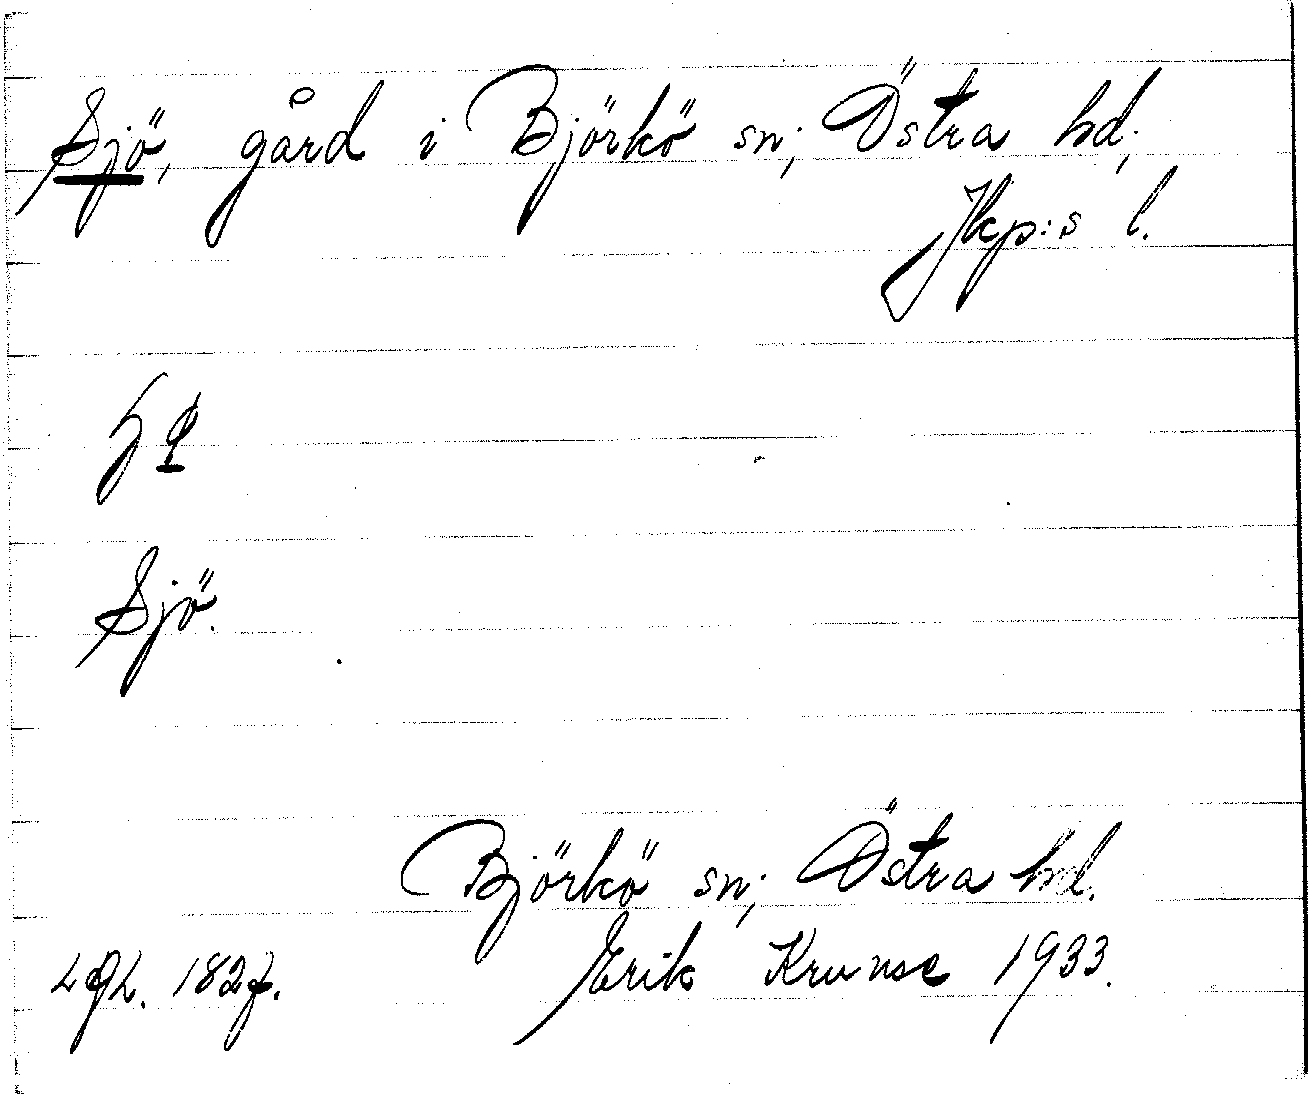 Sjö, gård i Björkö sn; Östra hd;
Jkp:s l.
Sjö.
Björkö sn; Östra hd.
Erik Krunse 1933.